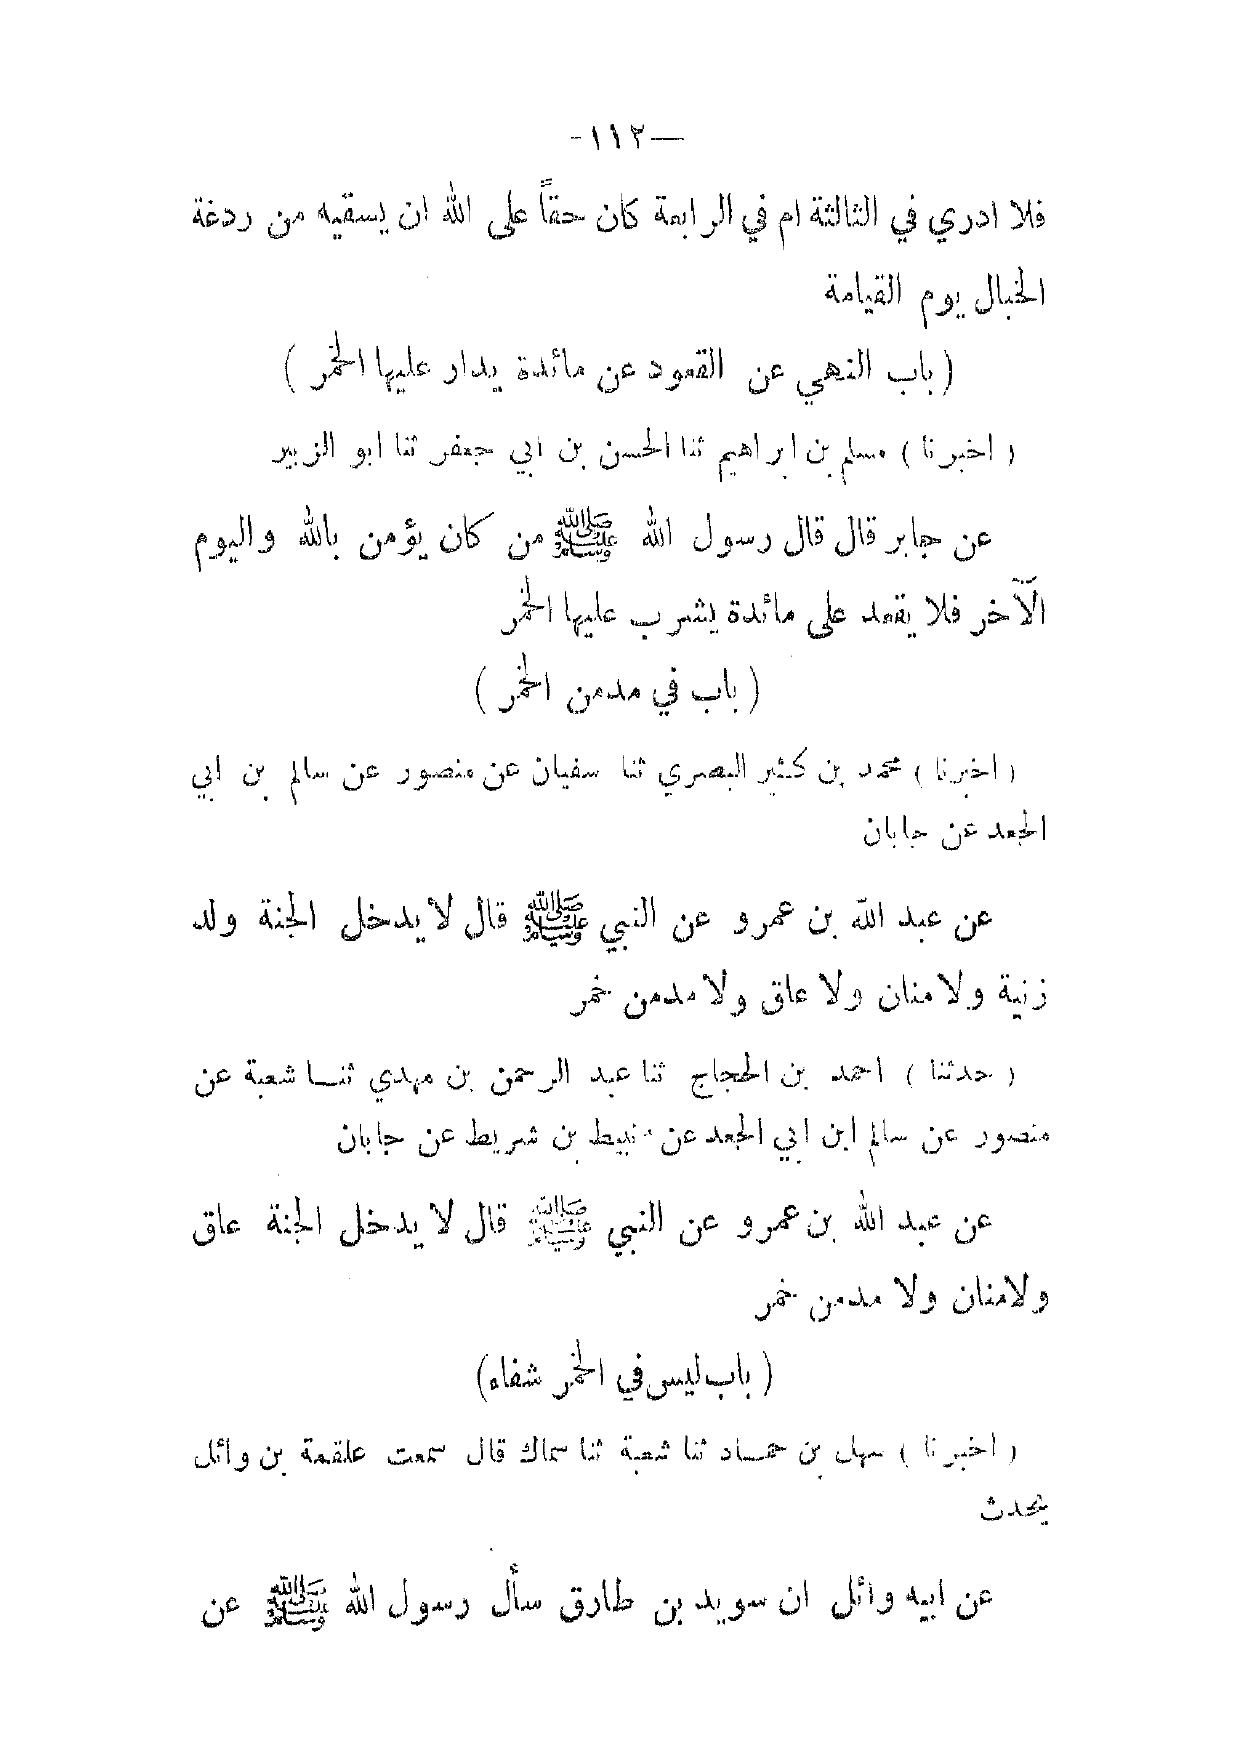 —١١٢-
فلا ادري في الثالثة ام في الرابعة كان حقاً على الله ان يسقيه من ردغة
الخبال يوم القيامة
( باب النهي عن القعود عن مائدة يدار عليها الخمر )
( اخبرنا ) مسلم بن ابراهيم ثنا الحسن بن ابي جعفر ثنا ابو الزبير
عن جابر قال قال رسول الله ﷺ من كان يؤمن بالله واليوم
الآخر فلا يقعد على مائدة يشرب عليها الخمر
( باب في مدمن الخمر )
( اخبرنا ) محمد بن كثير البصري ثنا سفيان عن منصور عن سالم بن ابي
الجعد عن جابان
عن عبد الله بن عمرو عن النبي ﷺ قال لا يدخل الجنة ولد
زنية ولا منان ولا عاق ولا مدمن خمر
( حدثنا ) احمد بن الحجاج ثنا عبد الرحمن بن مهدي ثنـا شعبة عن
منصور عن سالم ابن ابي الجعد عن نبيط بن شريط عن جابان
عن عبد الله بن عمرو عن النبي ﷺ قال لا يدخل الجنة عاق
ولا منان ولا مدمن خمر
( باب ليس في الخمر شفاء)
( اخبرنا ) سهل بن حمـاد ثنا شعبة ثنا سماك قال سمعت علقمة بن وائل
يحدث
عن ابيه وائل ان سويد بن طارق سأل رسول الله ﷺ عن